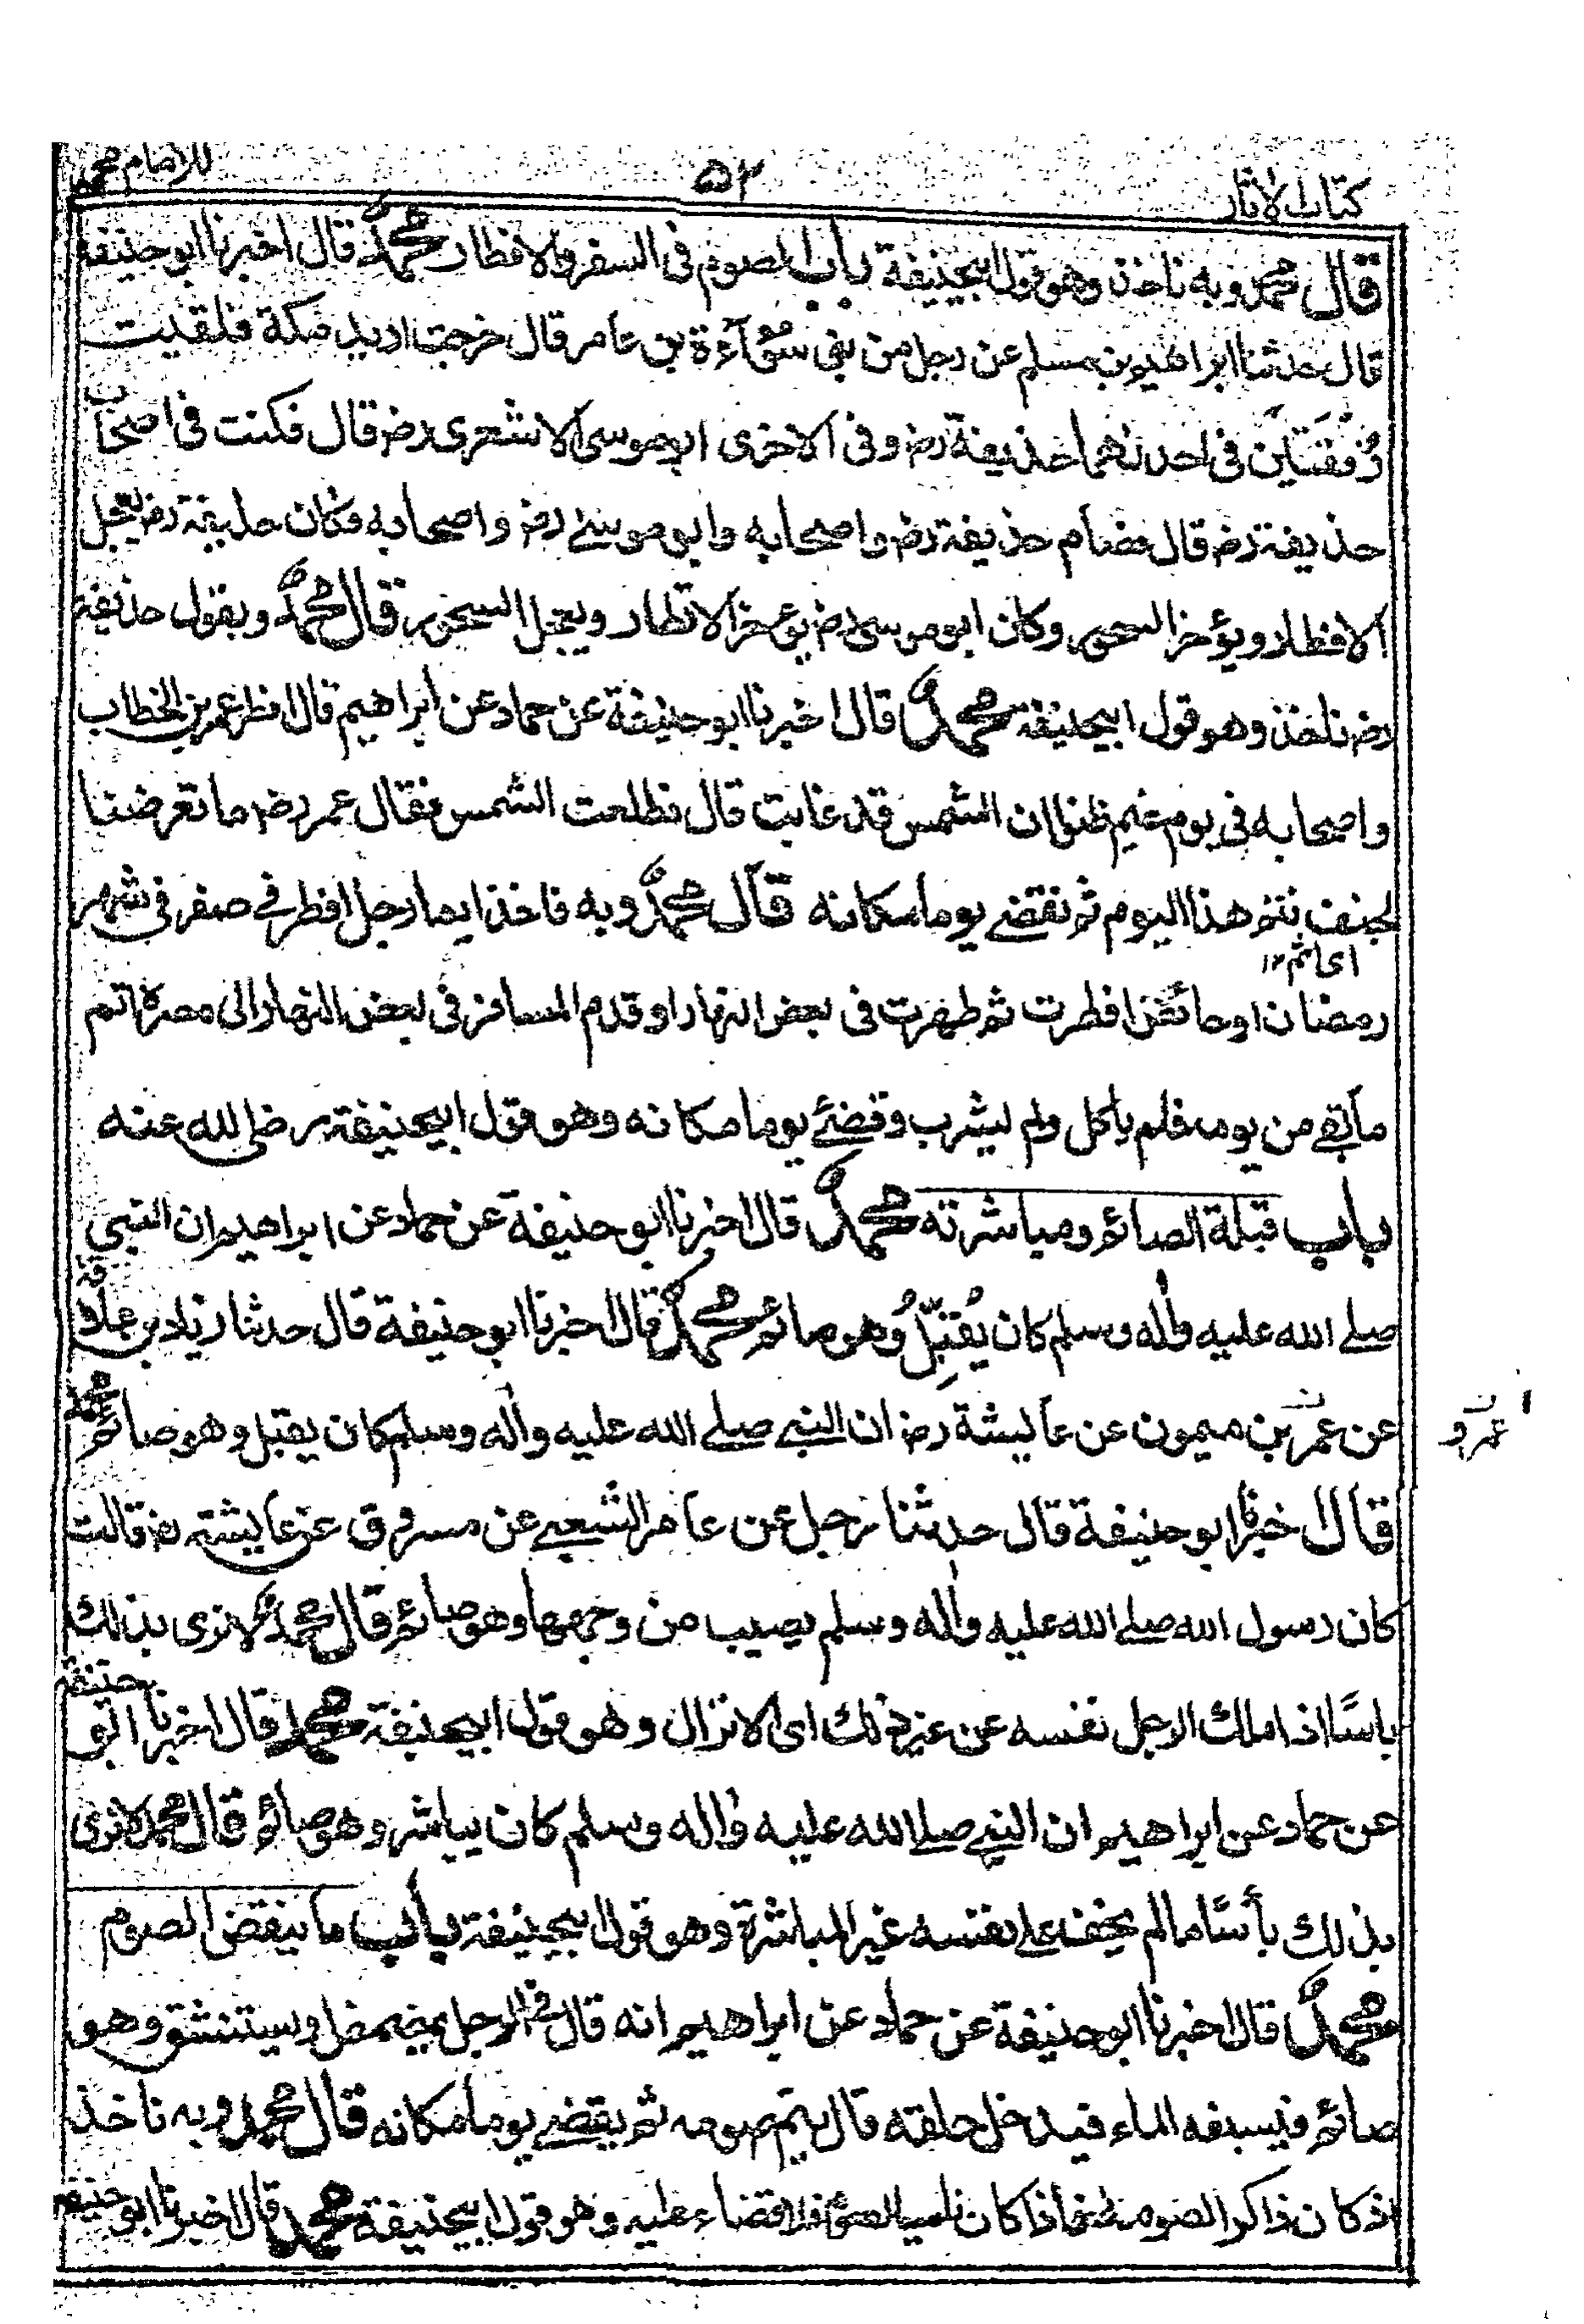 كتاب الاثار ٥٢ للامام محمد
قال محمد وبه ناخذ وهو قول ابيحنيفة باب الصوم فى السفر والافطار محمد قال اخبرنا ابو حنيفة
قال حدثنا ابراهيم بن مسلم عن رجل من بنى سُوَآءة بن عامر قال خرجت اريد مكة فلقيت
رُفقتَين فى احدٰهما حذيفة رض وفى الاخرى ابو موسى الاشعرى رض قال فكنت فى اصحاب
حذيفة رض قال فصام حذيفة رض واصحابه وابو موسىٰ رض واصحابه فكان حذيفة رض يعجل
الافطار ويؤخر السحور وكان ابو موسى رض يؤخر الافطار ويعجل السحور قال محمد وبقول حذيفة
رض ناخذ وهو قول ابيحنيفة محمد قال اخبرنا ابو حنيفة عن حماد عن ابراهيم قال افطر عمر بن الخطاب
واصحابه فى يوم غيم ظنوا ان الشمس قد غابت قال فطلعت الشمس فقال عمر رض ما تعرضنا
لجنف نتم هذا اليوم ثم نقضے يوما مكانه قال محمد وبه ناخذ ايما رجل افطر فے سفر فى شهر
اى اثم ١٢
رمضان او حائض افطرت ثم طهرت فى بعض النهار او قدم المسافر فى بعض النهار الى مصره اتم
ما بقے من يومه فلم ياكل ولم يشرب وقضىٰ يوما مكانه وهو قول ابيحنيفة رضى الله عنه
باب قبلة الصائم ومباشرته محمد قال اخبرنا ابو حنيفة عن حماد عن ابراهيم ان النبى
صلے الله عليه واٰله وسلم كان يُقبِّلُ وهو صائم محمد قال اخبرنا ابو حنيفة قال حدثنا زياد بن علاقة
عن عمر بن ميمون عن عايشة رض ان النبے صلے الله عليه واٰله وسلم كان يقبل وهو صائم محمد
١ عمرو ن
قال اخبرنا ابو حنيفة قال حدثنا رجل عن عامر الشعبے عن مسروق عن عايشة رض قالت
كان رسول الله صلے الله عليه واٰله وسلم يصيب من وجهها وهو صائم قال محمد لا نرى بذلك
باسًا اذا ملك الرجل نفسه عن غير ذلك اى الانزال وهو قول ابيحنيفة محمد قال اخبرنا ابو حنيفة
عن حماد عن ابراهيم ان النبے صلے الله عليه واٰله وسلم كان يباشر وهو صائم قال محمد لا نرى
بذلك بأسًا ما لم يخف على نفسه غير المباشرة وهو قول ابيحنيفة باب ما ينقض الصوم
محمد قال اخبرنا ابو حنيفة عن حماد عن ابراهيم انه قال فى الرجل يمضمض او يستنشق وهو
صائم فيسبقه الماء فيدخل حلقه قال يتم صومه ثم يقضے يوما مكانه قال محمد وبه ناخذ
اذ كان ذاكرا لصومه فاذا كان ناسيا للصوم فلا قضاء عليه وهو قول ابيحنيفة محمد قال اخبرنا ابو حنيفة